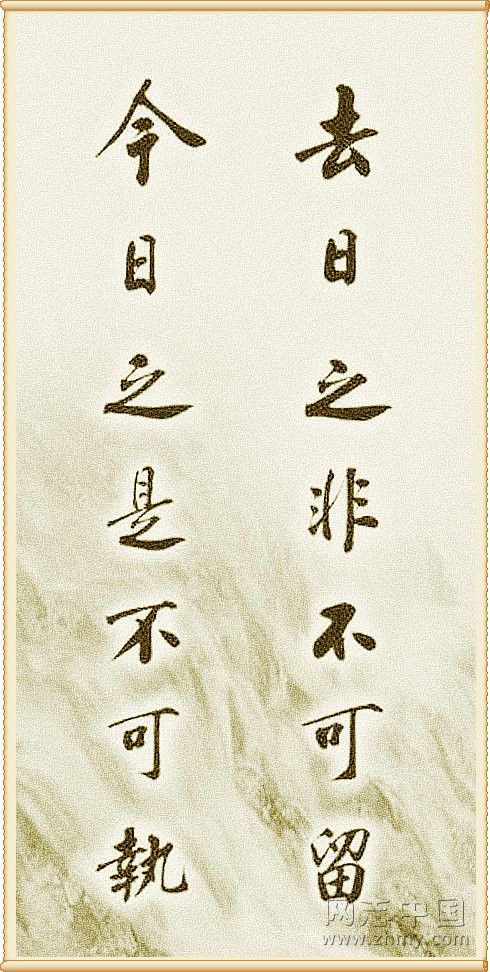 去日之非不可留
今日之是不可執
网活中国
www.znmy.com